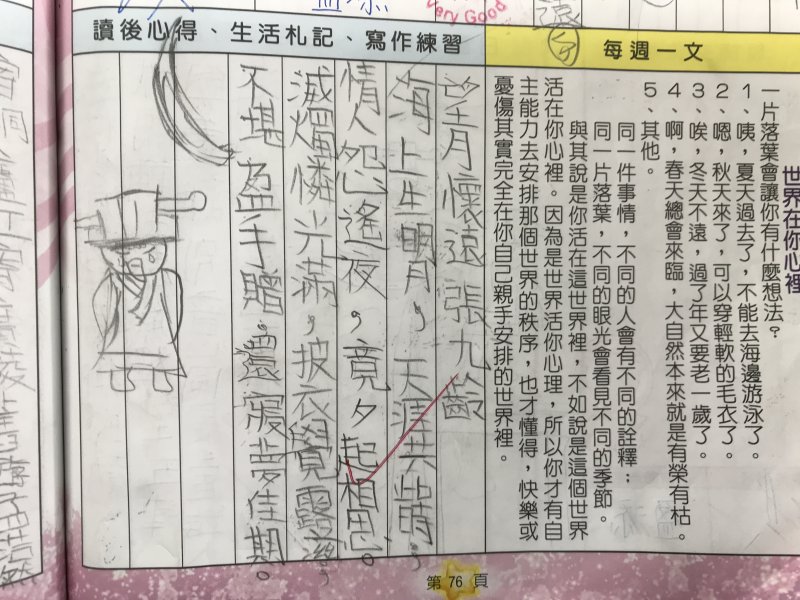 Very Good
每週一文
世界在你心裡
一片落葉會讓你有什麼想法？
1、咦，夏天過去了，不能去海邊游泳了。
2、嗯，秋天來了，可以穿輕軟的毛衣了。
3、唉，冬天不遠，過了年又要老一歲了。
4、啊，春天總會來臨，大自然本來就是有榮有枯。
5、其他。
同一件事情，不同的人會有不同的詮釋；
同一片落葉，不同的眼光會看見不同的季節。
與其說是你活在這世界裡，不如說是這個世界
活在你心裡。因為是世界活你心理，所以你才有自
主能力去安排那個世界的秩序，也才懂得，快樂或
憂傷其實完全在你自己親手安排的世界裡。
讀後心得、生活札記、寫作練習
望月懷遠 張九齡
海上生明月，天涯共此時。
情人怨遙夜，竟夕起相思。
滅燭憐光滿，披衣覺露滋，
不堪盈手贈，還寢夢佳期。
第 76 頁